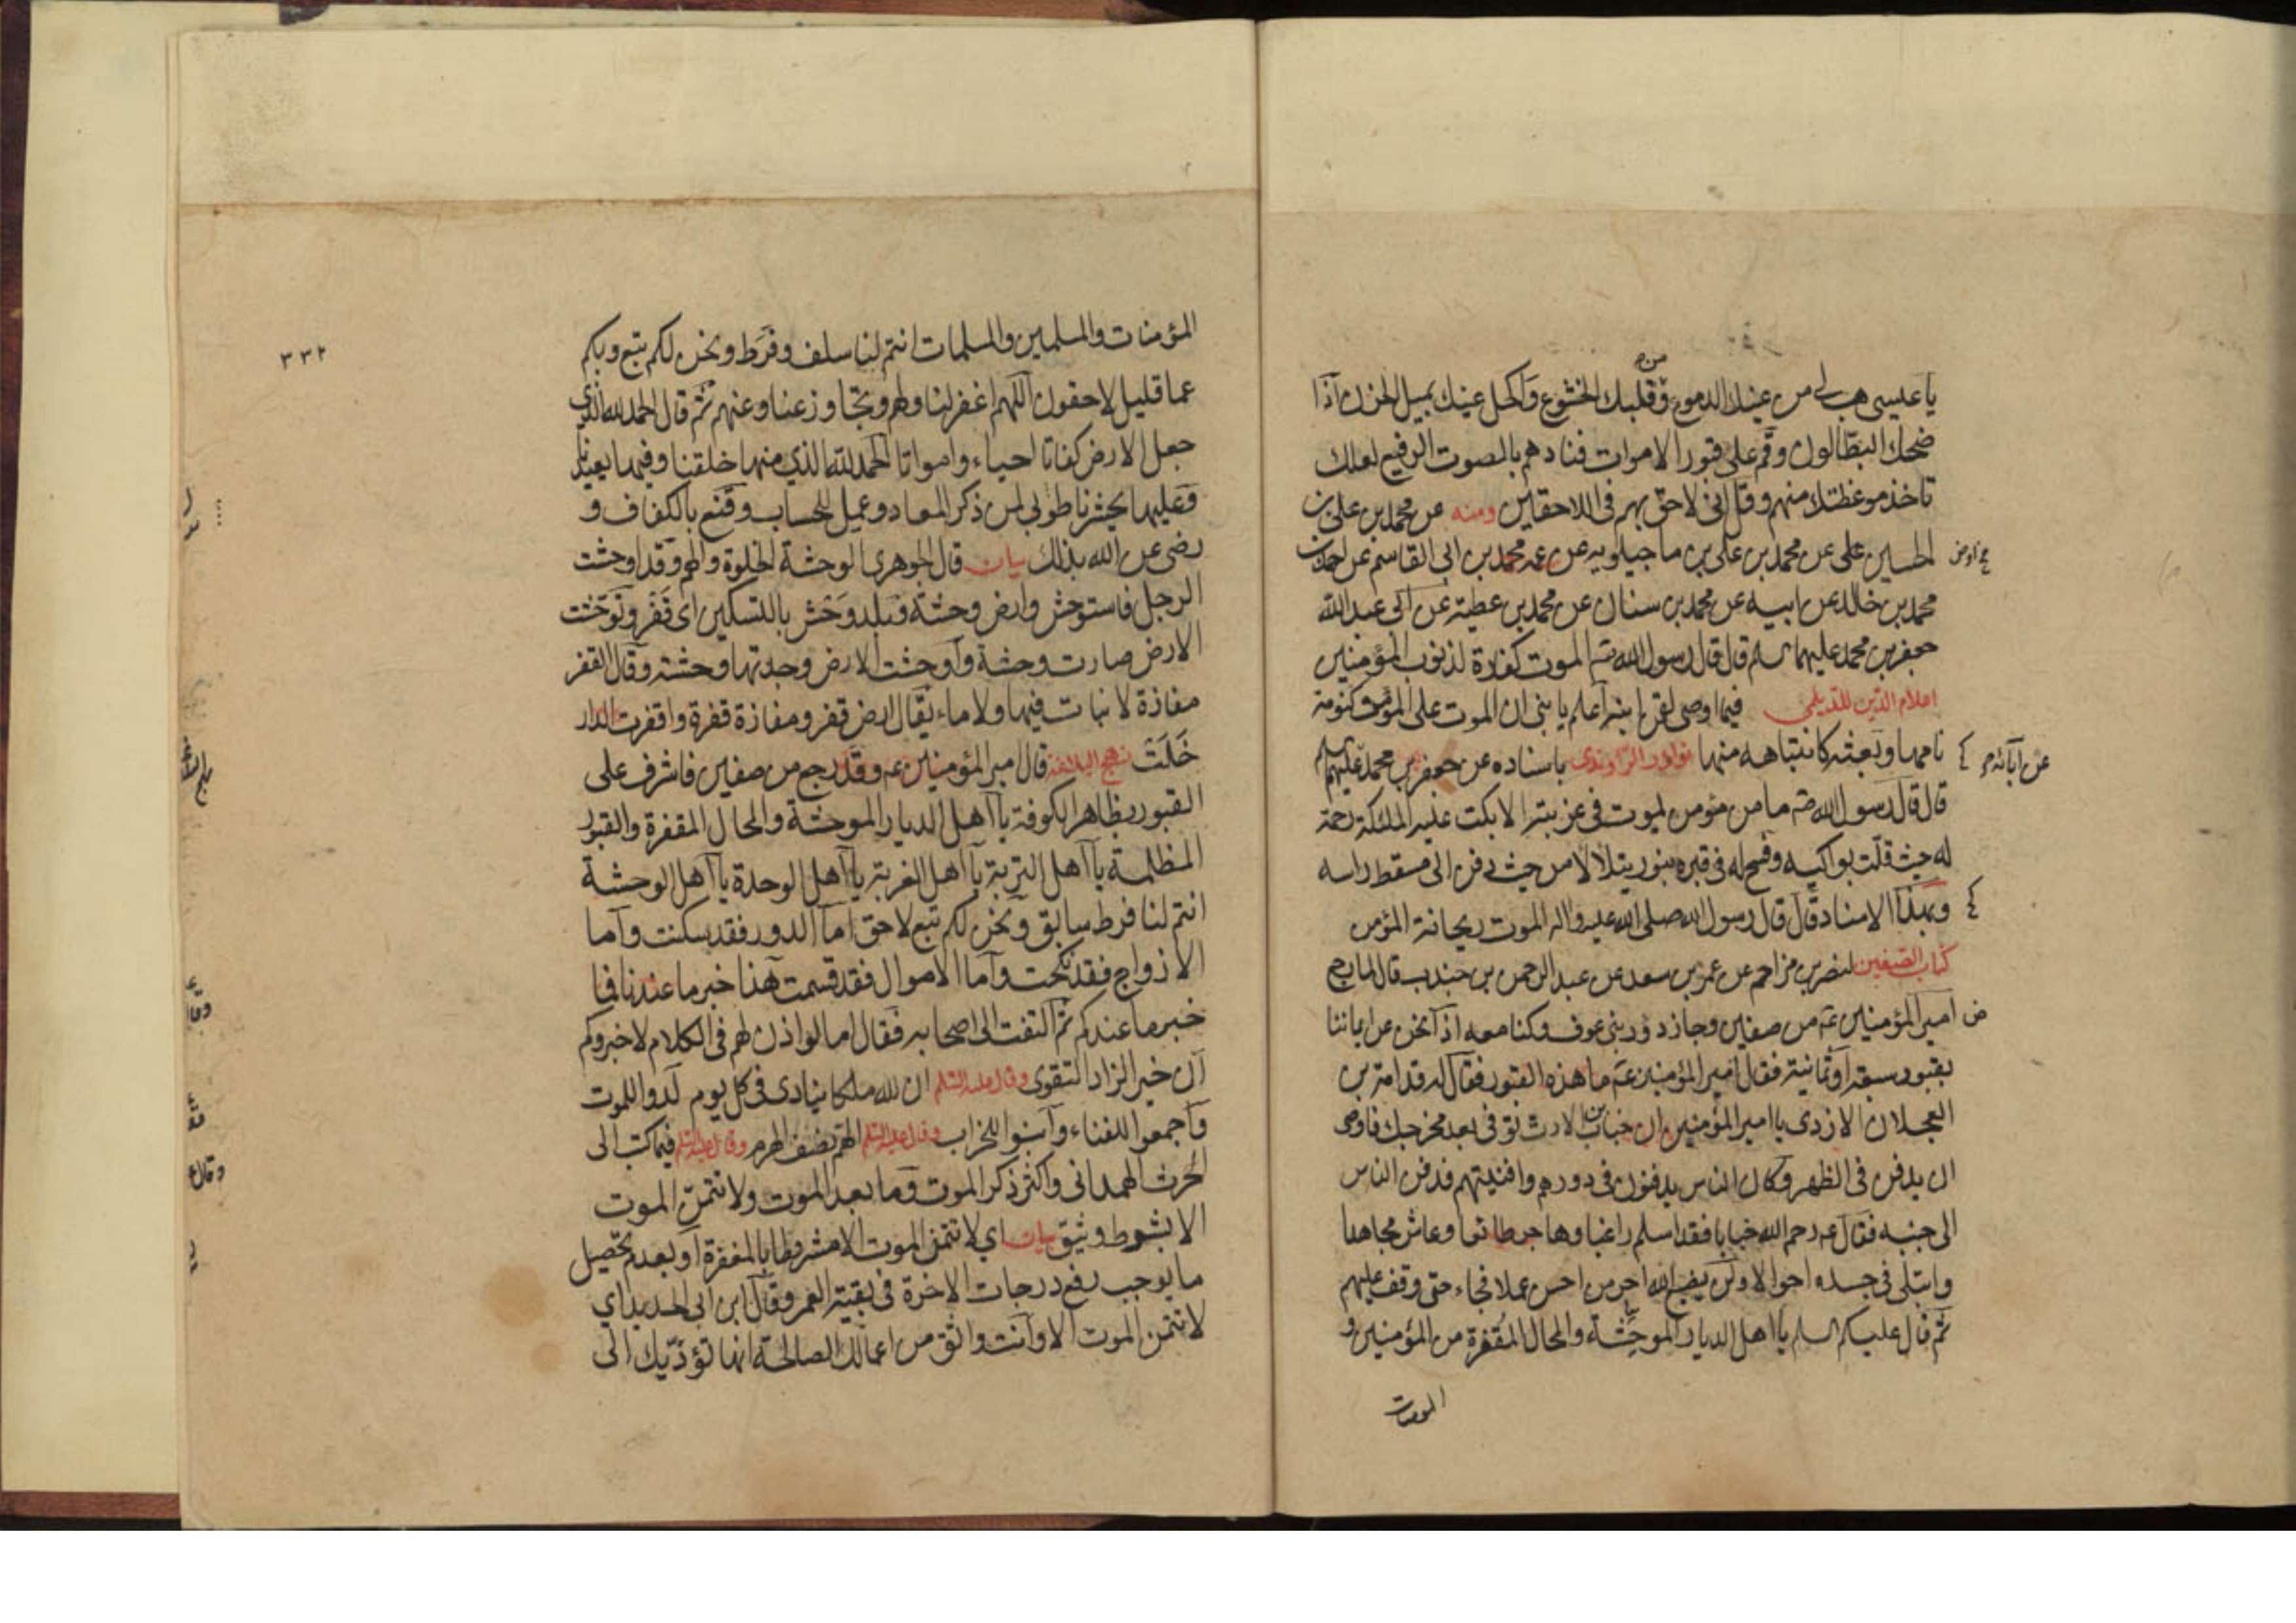 يا عيسى هب لي من عينيك الدموع و قلبك الخشوع واكحل عينك بميل الحزن اذا
من م
ضحك البطالون وقم على قبور الاموات فنادهم بالصوت الرفيع لعلك
تاخذ موعظتك منهم وقل اني لاحق بهم في اللاحقين ومنه عن محمد بن علي بن
الحسين علي عن محمد بن علي بن ماجيلويه عن عمه محمد بن ابي القاسم عن احمد بن
محمد بن خالد عن ابيه عن محمد بن سنان عن محمد بن عطية عن ابي عبد الله
جعفر بن محمد عليهما السلم قال قال رسول الله ص الموت كفارة لذنوب المؤمنين
اعلام الدين للديلمي فيما اوصى لقمن ابنه اعلم يا بني ان الموت على المؤمن كنومة
نامها و بعثه كانتباهه منها نوادر الراوندي باسناده عن جعفر بن محمد عليهم السلم
عن آبائه م
قال قال رسول الله ص ما من مؤمن يموت في غربته الا بكت عليه الملئكة رحمة
له حيث قلت بواكيه وفسح له في قبره بنور يتلالا من حيث دفن الى مسقط راسه
وبهذا الاسناد قال قال رسول الله صلى الله عليه واله الموت ريحانة المؤمن
كتاب الصفين لنصر بن مزاحم عن عمر بن سعد عن عبد الرحمن بن جندب قال لما رجع
امير المؤمنين ع من صفين وجاز دور بني عوف وكنا معه اذا نحن عن ايماننا
بقبور سبعة او ثمانية فقال امير المؤمنين ع ما هذه القبور فقال له قدامة بن
العجلان الازدي يا امير المؤمنين ان خباب بن الارت توفي بعد مخرجك فاوصى
ان يدفن في الظهر وكان الناس يدفنون في دورهم وافنيتهم فدفن الناس
الى جنبه فقال ع رحم الله خبابا فقد اسلم راغبا وهاجر طائعا وعاش مجاهدا
وابتلي في جسده احوالا ولن يضيع الله اجر من احسن عملا فجاء حتى وقف عليهم
ثم قال عليكم السلم يا اهل الديار الموحشة والمحال المقفرة من المؤمنين و
المؤمنات
٣٣٢
المؤمنات والمسلمين والمسلمات انتم لنا سلف وفرط ونحن لكم تبع وبكم
عما قليل لاحقون اللهم اغفر لنا ولهم وتجاوز عنا وعنهم ثم قال الحمد لله الذي
جعل الارض كفاتا احياء وامواتا الحمد لله الذي منها خلقنا وفيها يعيدنا
وعليها يحشرنا طوبى لمن ذكر المعاد وعمل للحساب وقنع بالكفاف و
رضي عن الله بذلك بيان قال الجوهري الوحشة الخلوة والهم وقد اوحشت
الرجل فاستوحش وارض وحشة وبلد وحش بالتسكين اى قفر وتوحشت
الارض صارت وحشة واوحشت الارض وجدتها وحشة وقال القفر
مفازة لا نبات فيها ولا ماء يقال ارض قفر ومفازة قفرة واقفرت الدار
خلت نهج البلاغة قال امير المؤمنين ع وقد رجع من صفين فاشرف على
القبور بظاهر الكوفة يا اهل الديار الموحشة والمحال المقفرة والقبور
المظلمة يا اهل التربة يا اهل الغربة يا اهل الوحدة يا اهل الوحشة
انتم لنا فرط سابق ونحن لكم تبع لاحق اما الدور فقد سكنت واما
الازواج فقد نكحت واما الاموال فقد قسمت هذا خبر ما عندنا فما
خبر ما عندكم ثم التفت الى اصحابه فقال اما لو اذن لهم في الكلام لاخبروكم
ان خير الزاد التقوى وقال عليه السلم ان لله ملكا ينادى في كل يوم لدوا للموت
واجمعوا للفناء وابنوا للخراب وقال عليه السلم الهم نصف الهرم وقال عليه السلم فيما كتب الى
الحرث الهمداني واكثر ذكر الموت وما بعد الموت ولا تتمن الموت
الا بشرط وثيق بيان اي لا تتمن الموت الا مشروطا بالمغفرة او بعد تحصيل
ما يوجب رفع درجات الاخرة في بقية العمر وقال ابن ابي الحديد اي
لا تتمن الموت الا وانت واثق من اعمالك الصالحة انها تؤديك الى